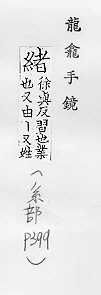 龍龕手鏡
緒徐與反習也業
也又由丨又姓
（糸部P399）